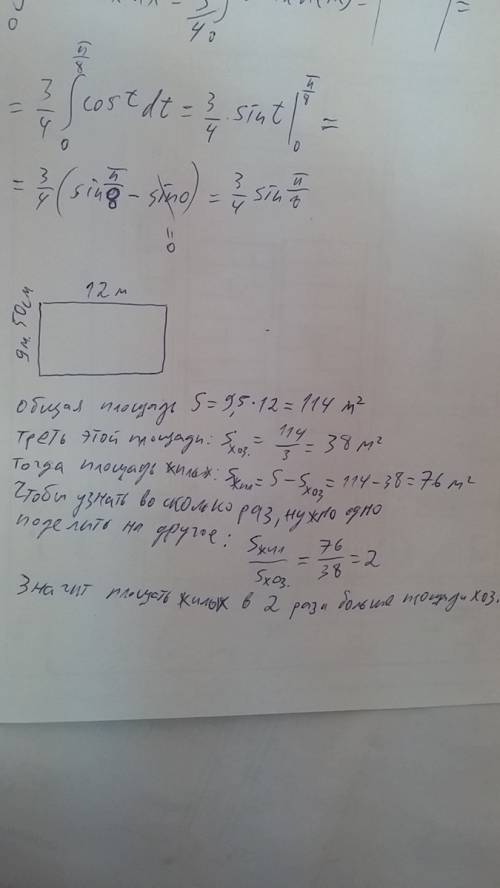 = 3/4 ∫₀^{π/8} cos t dt = 3/4 · sin t |₀^{π/8} =
= 3/4 (sin π/8 − sin 0) = 3/4 sin π/8
= 0
12 м
9м. 50см
Общая площадь S = 9,5 · 12 = 114 м²
треть этой площади: Sхоз. = 114/3 = 38 м²
Тогда площадь жилых: Sжил = S − Sхоз = 114 − 38 = 76 м²
Чтобы узнать во сколько раз, нужно одно
поделить на другое: Sжил/Sхоз. = 76/38 = 2
Значит площать жилых в 2 раза больше площади хоз.